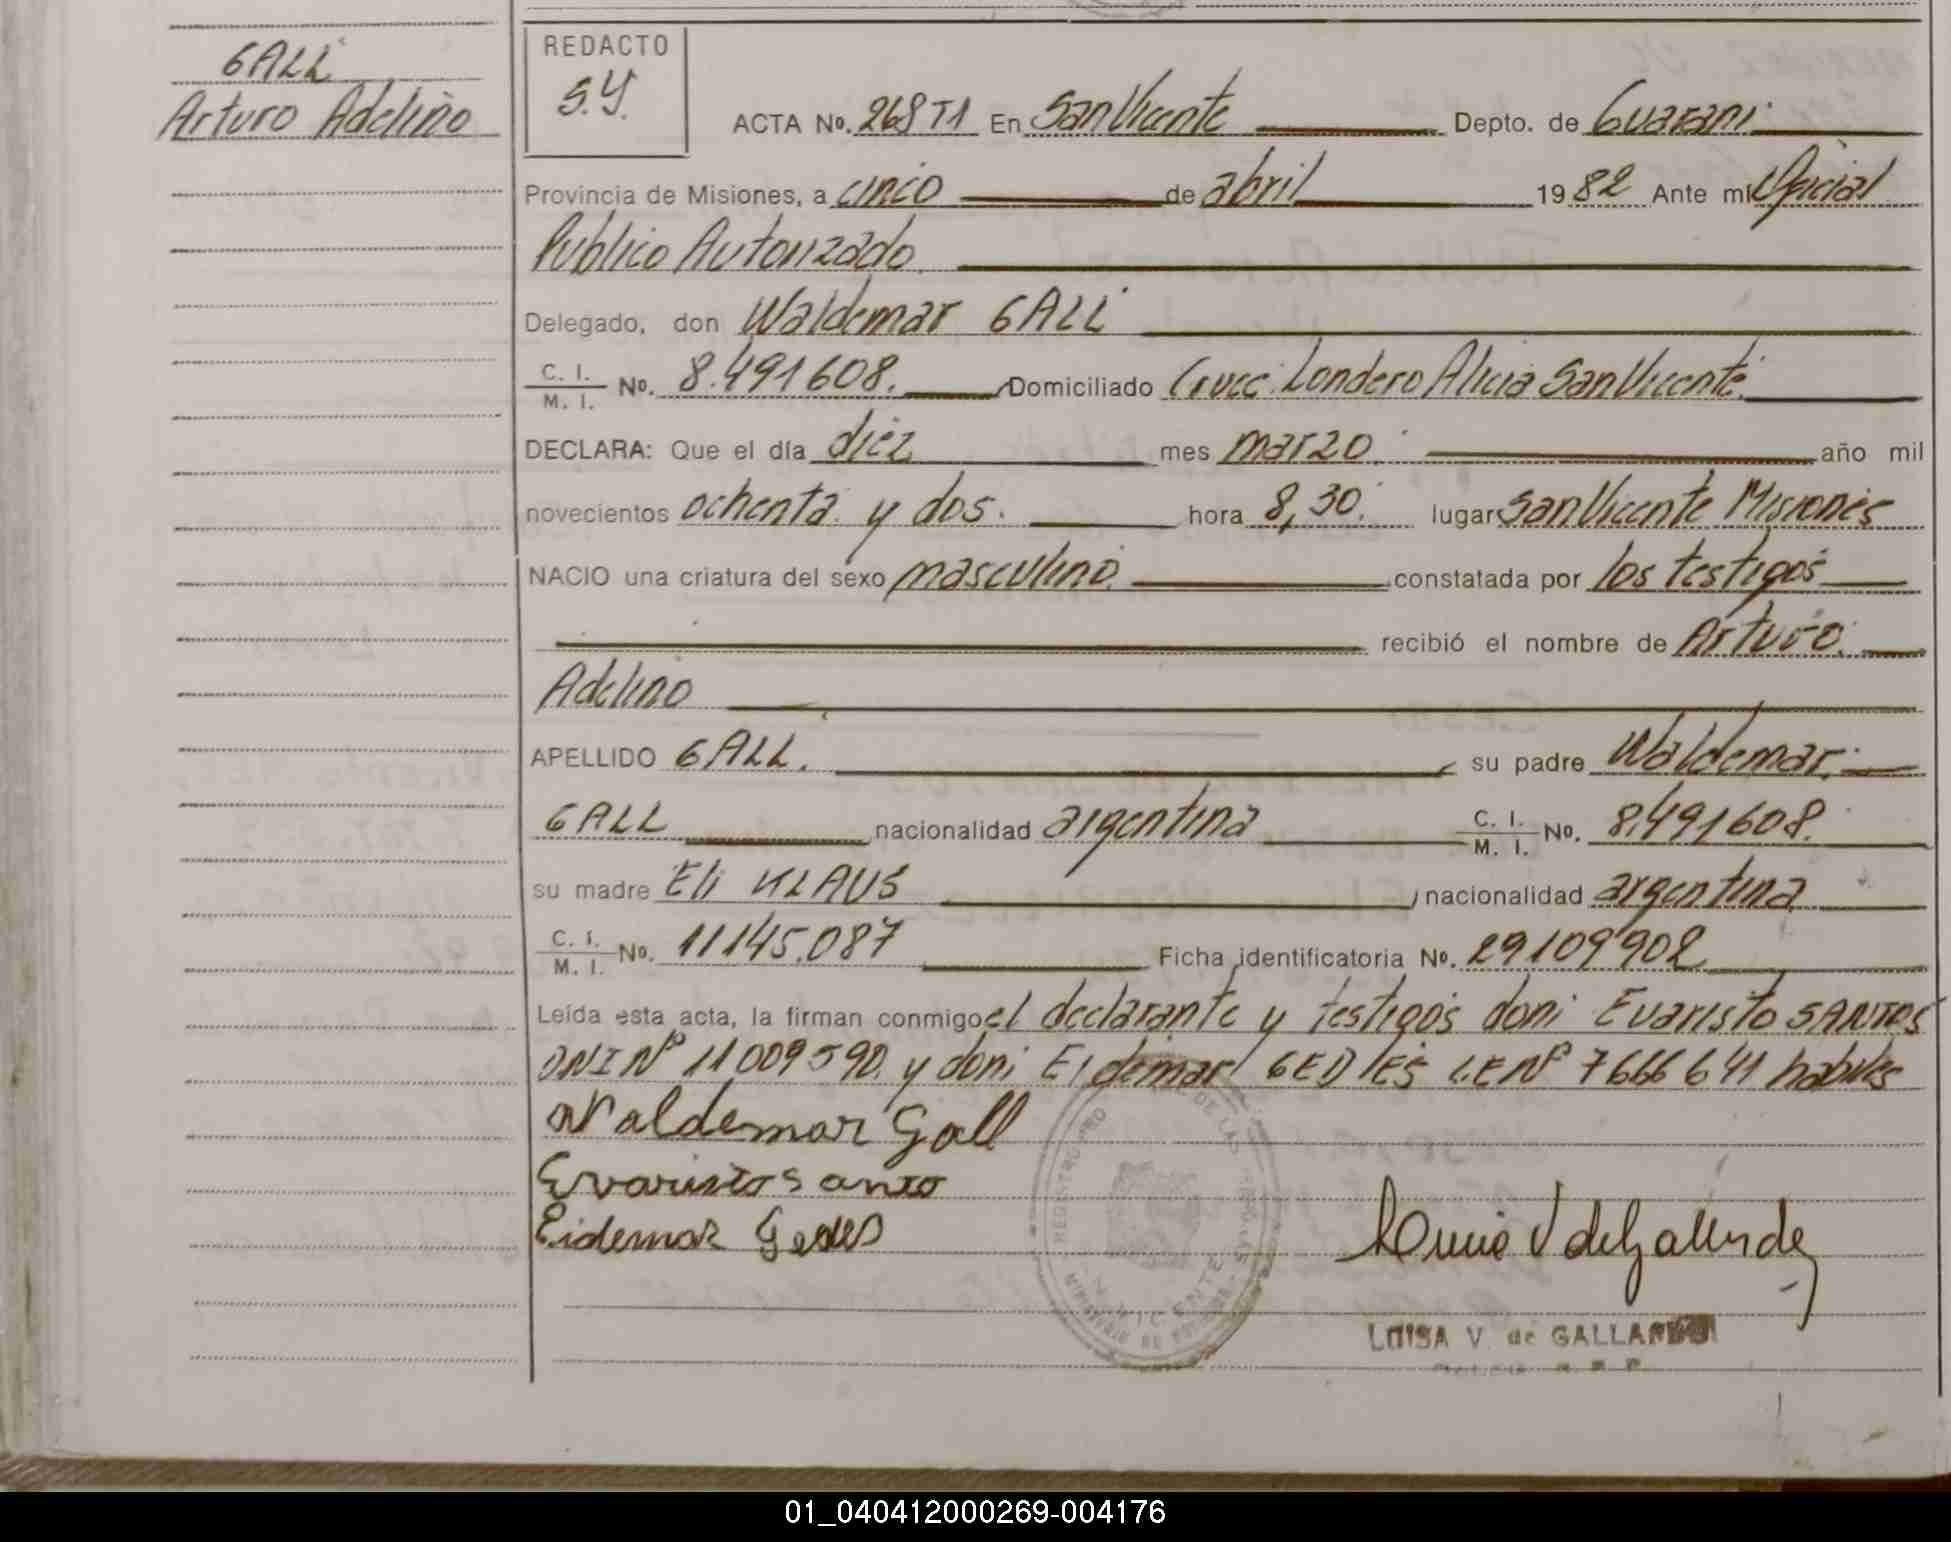 GALL
Arturo Adelino
REDACTO
S.Y.
ACTA Nº. 268 T1 En San Vicente Depto. de Guarani
Provincia de Misiones, a cinco de abril 1982 Ante mi Oficial
Publico Autorizado
Delegado, don Waldemar GALL
C. I. / M. I. Nº. 8.491608. Domiciliado Cruce Londero Alicia San Vicente.
DECLARA: Que el día diez mes marzo año mil
novecientos ochenta y dos. hora 8,30. lugar San Vicente Misiones
NACIO una criatura del sexo masculino. constatada por los testigos
recibió el nombre de Arturo
Adelino
APELLIDO GALL. su padre Waldemar
GALL nacionalidad argentina C. I. / M. I. Nº. 8.491608.
su madre Eli KLAUS nacionalidad argentina
C. I. / M. I. Nº. 11145.087 Ficha identificatoria Nº. 29109902
Leída esta acta, la firman conmigo el declarante y testigos doni Evaristo SANTOS
DNI Nº 11009590 y doni Eidemar GEDIES L.E Nº 7666641 habiles
Waldemar Gall
Evaristo Santo
Eidemar Gedes
REGISTRO PRO DE LAS PERSONAS
S. VICENTE
MINISTERIO DE GOBIERNO
LUISA V. de GALLARDO
01_040412000269-004176